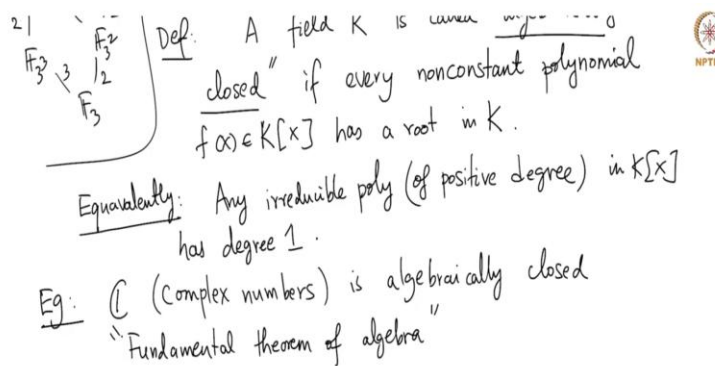 21
F₃³ 3 F₃² 2 F₃
Def: A field K is called
closed" if every nonconstant polynomial
f(x) ∈ K[x] has a root in K.
Equavalently: Any irreducible poly (of positive degree) in K[x]
has degree 1.
Eg: ℂ (complex numbers) is algebraically closed
"Fundamental theorem of algebra"
NPTE